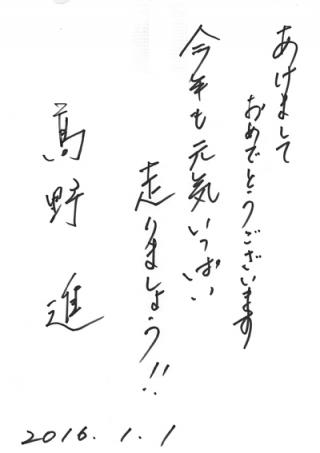 あけまして
おめでとうございます
今年も元気いっぱい
走りましょう!!
髙野 進
2016.1.1